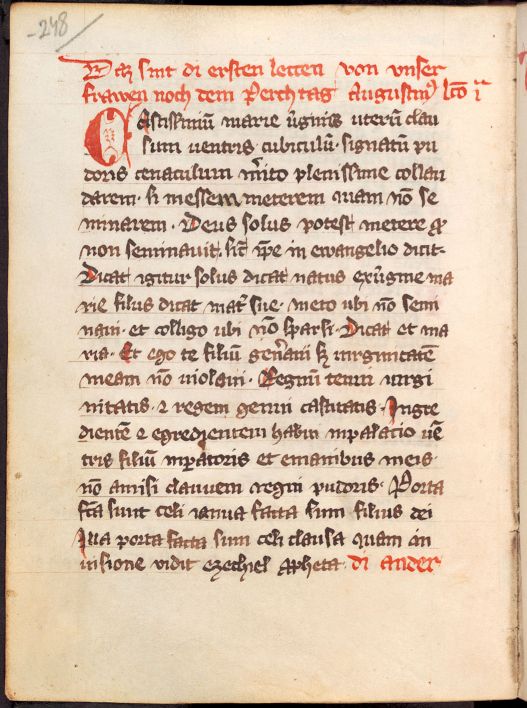 248
Daz sint di ersten letten von vnser
frawen noch dem Perchtag Augustin9 lc̄o ia
CAstissimū marie v̄ginis uterū clau
sum uentris cubiculū signatū pu
doris cenaculum m̄ito plenissime collau
darem · si messem meterem quam nō se
minarem · Deus solus potest metere qd
non seminauit · sic̄ ip̄e in ewangelio dicit ·
Dicat igitur solus dicat natus ex v̄gine ma
rie filius dicat mat̄ sue · meto ubi nō semi
naui · et colligo ubi nō sparsi · Dicat et ma
ria · Et ego te filiū gen̄aui sꝫ uirginitatē
meam nō uiolaui · Regnū tenui uirgi
nitatis · ⁊ regem genui castitatis · Ingre
dientē ⁊ egredientem habui in palacio uē
tris filiū inp̄atoris et emanibus meis ·
nō amisi clauuem regni pudoris · Porta
fc̄a sunt celi ianua facta sum filius dei
Illa porta facta sum celi clausa quam in
uisione uidit ezechiel ꝓpheta · di ander